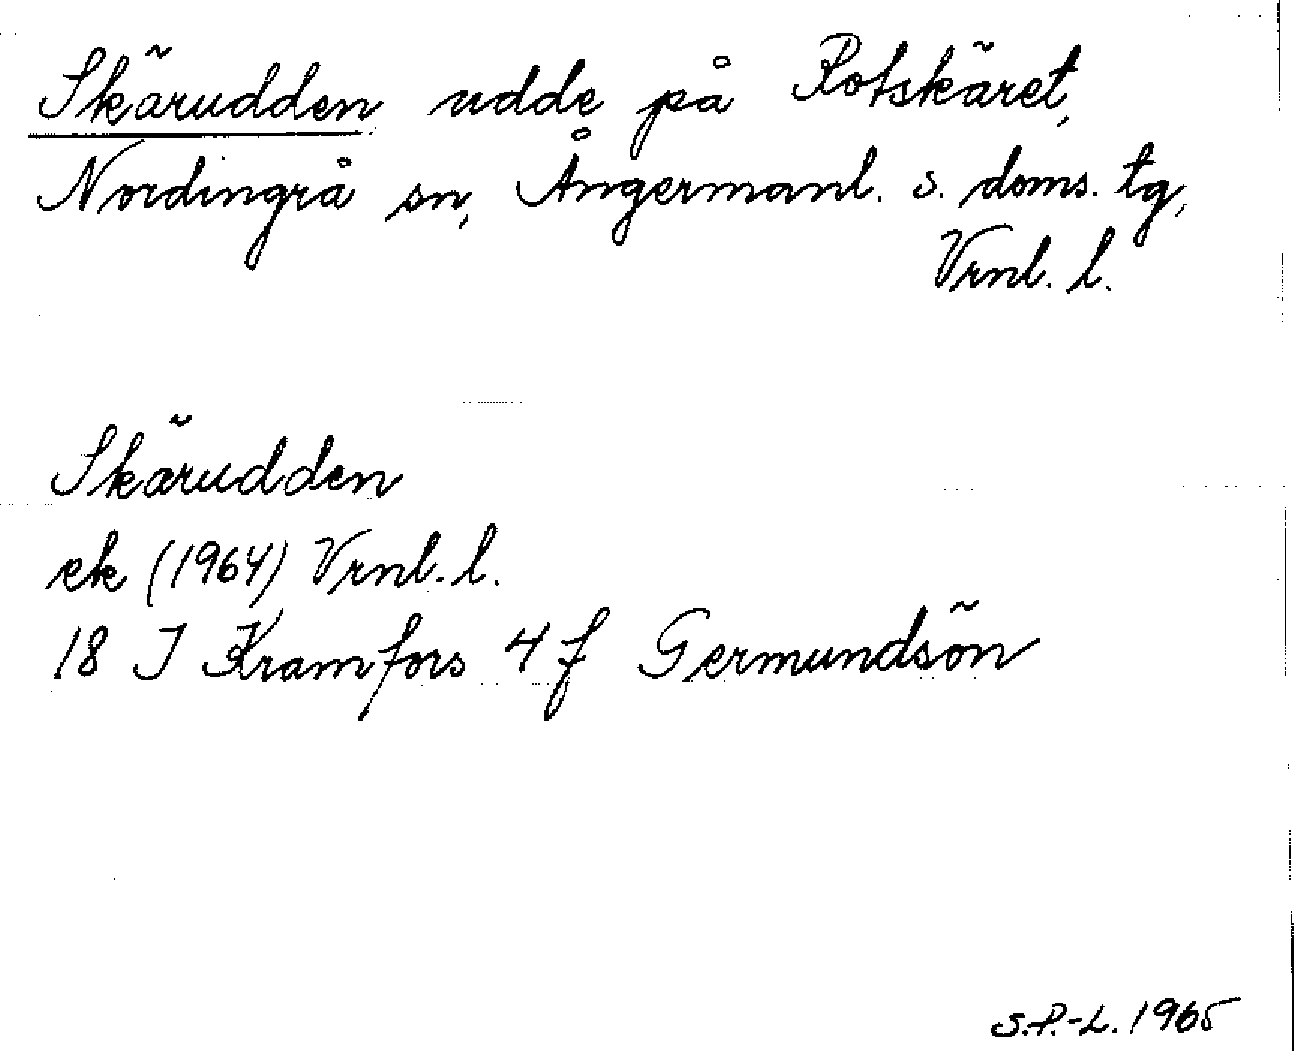 Skärudden udde på Rotskäret,
Nordingrå sn, Ångermanl. s. doms. tg,
Vrnl. l.
Skärudden
ek (1964) Vrnl. l.
18 I Kramfors 4 f Germundsön
S.P.-L. 1965